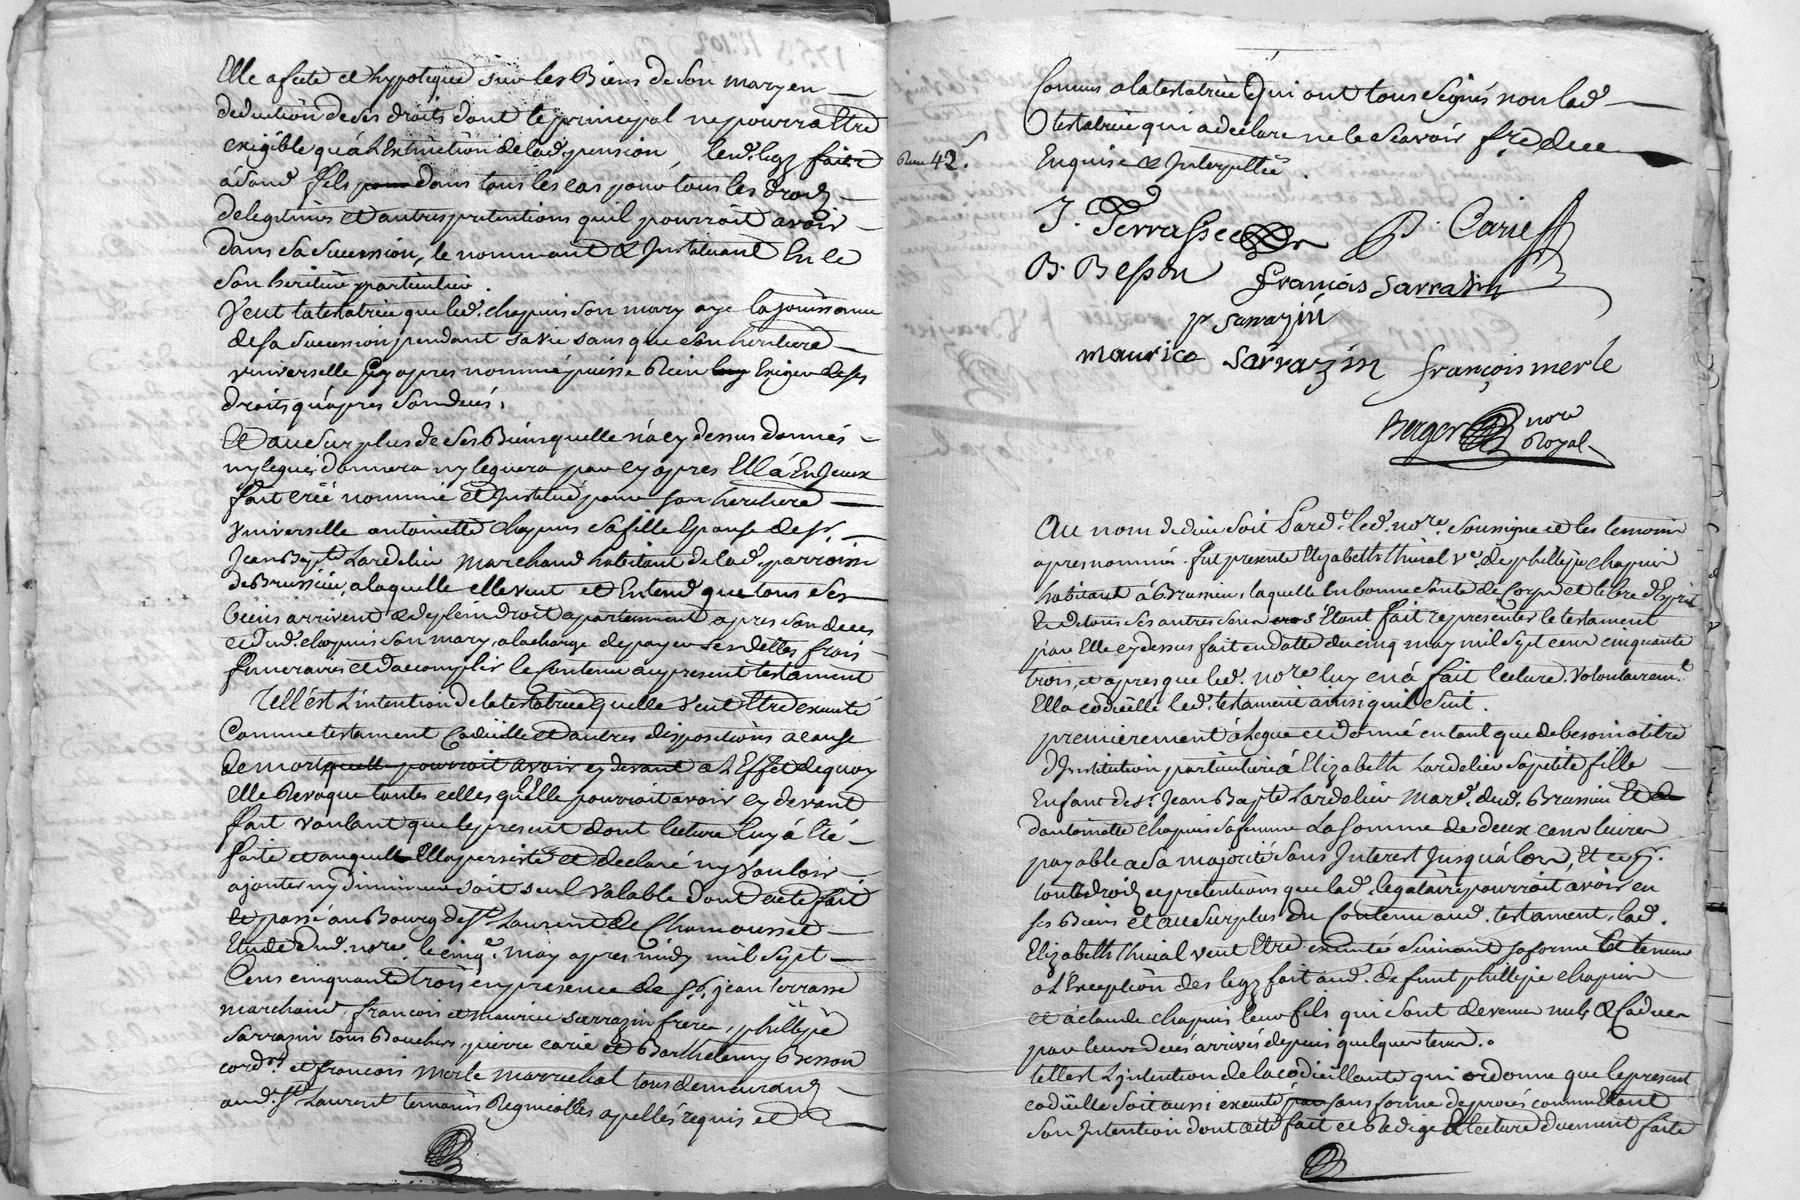 Elle afecte et hypoteque sur les Biens de Son mary en
deduction de ses droits dont le principal ne pourra Etre
exigible qu'à L'Extinction de lad. pension, led. legz faitte
à Sond. fils dans tous les cas pour tous les droitz
de legitimes et autres pretentions quil pourroit avoir
dans Sa Sucession, le nommant & Instituant En ce
Son heritier particulier.
Veut la testatrice que led. chapuis Son mary aye la jouissance
de Sa Sucession pendant Sa vie Sans que Son heritiere
universelle cy apres nommé puisse Rien Exiger de ses
droits qu'apres Son deces,
Et au Surplus de Ses Biens quelle n'a cy dessus donnés
ny legué, donnera ny leguera par cy apres Ell'a
fait créé nommé et Institué pour Son heritiere
Universelle antoinette chapuis Sa fille Epouse de Sr.
Jean Bapte. Lardelier Marchand habitant de lad. parroisse
de Brussieu, a laquelle elle veut et Entend que tous Ses
biens arrivent & de plein droit apartiennent apres Son deces
et dud. chapuis Son mary, a la charge de payer Ses dettes frais
funeraires et d'acomplir le Contenu au present testament
Tell'est L'intention de la testatrice quelle veut Etre executé
Comme testament Codicille et autres dispositions a cause
de mort quelle pourroit avoir cy devant a L'Effet de quoy
Elle Revoque toutes celles qu'elle pourroit avoir cy devant
fait voulant que le present dont lecture luy à été
faite et auquel Ella persisté et declaré n'y vouloir
ajouter ny diminuer soit seul valable dont acte fait
et passé au Bourg de St. Laurent de Chamousset
Etude dud. nore. le cinq. may apres midy mil Sept
Cens cinquante trois en presence de Sr. jean terrasse
marchand, francois et maurice sarrazin freres, phillipe
Sarrazin tous Bouchers, pierre carie et Barthelemy Besson
cordrs. et francois Merle marrechal tous demeurants
aud. St. Laurent temoins Regnicolles apellés requis et
Connus a la testatrice Qui ont tous Signés non lad.
testatrice qui a declare ne le Scavoir
Enquise & Interpellée.
42.
J. Terrasse P. Carie
B. Besson francois Sarrazin
p. Sarrazin
maurice Sarrazin françois merle
Berger nore
Royal
Au nom de dieu Soit Pardt. led. nore. Soussigne et les temoins
apres nommés fut presente Elizabeth thinal ve. de phillipe chapuis
habitant à Brussieu, laquelle en bonne Santé de Corps et libre d'Esprit
Et de tous Ses autres Sens S'Etant fait representer le testament
par Elle cy dessus fait en datte du cinq may mil Sept cens cinquante
trois, et apres que led. nore luy en à fait lecture. Volontairemt.
Ella codicillé led. testament ainsi quil Suit.
premierement à legué et donné en tant que de besoin a titre
d'Institution particuliere à Elizabeth Lardelier Sa petite fille
Enfant de Sr. Jean Bapte Lardelier Mard. dud. Brussieu Et
d'antoinette chapuis Sa femme La Somme de deux cens livres
payable a Sa majorité Sans Interest Jusqu'à lors, Et ce pr.
tous droitz et pretentions que lad. legataire pourroit avoir en
Ses Biens et au Surplus du Contenu aud. testament, lad.
Elizabeth thinal veut Etre executé Suivant Sa forme Et teneur
a L'Exception des legz fait aud. defunt phillipe chapuis
et à claude chapuis leur fils qui Sont devenu nuls & Caducs
par leurs deces arrivés depuis quelque tems.
tell'est L'intention de la codicillante qui ordonne que le present
codicille Soit aussi executé Sans forme de proces comme Etant
Son Intention dont acte fait et Redigé & lecture duement faite